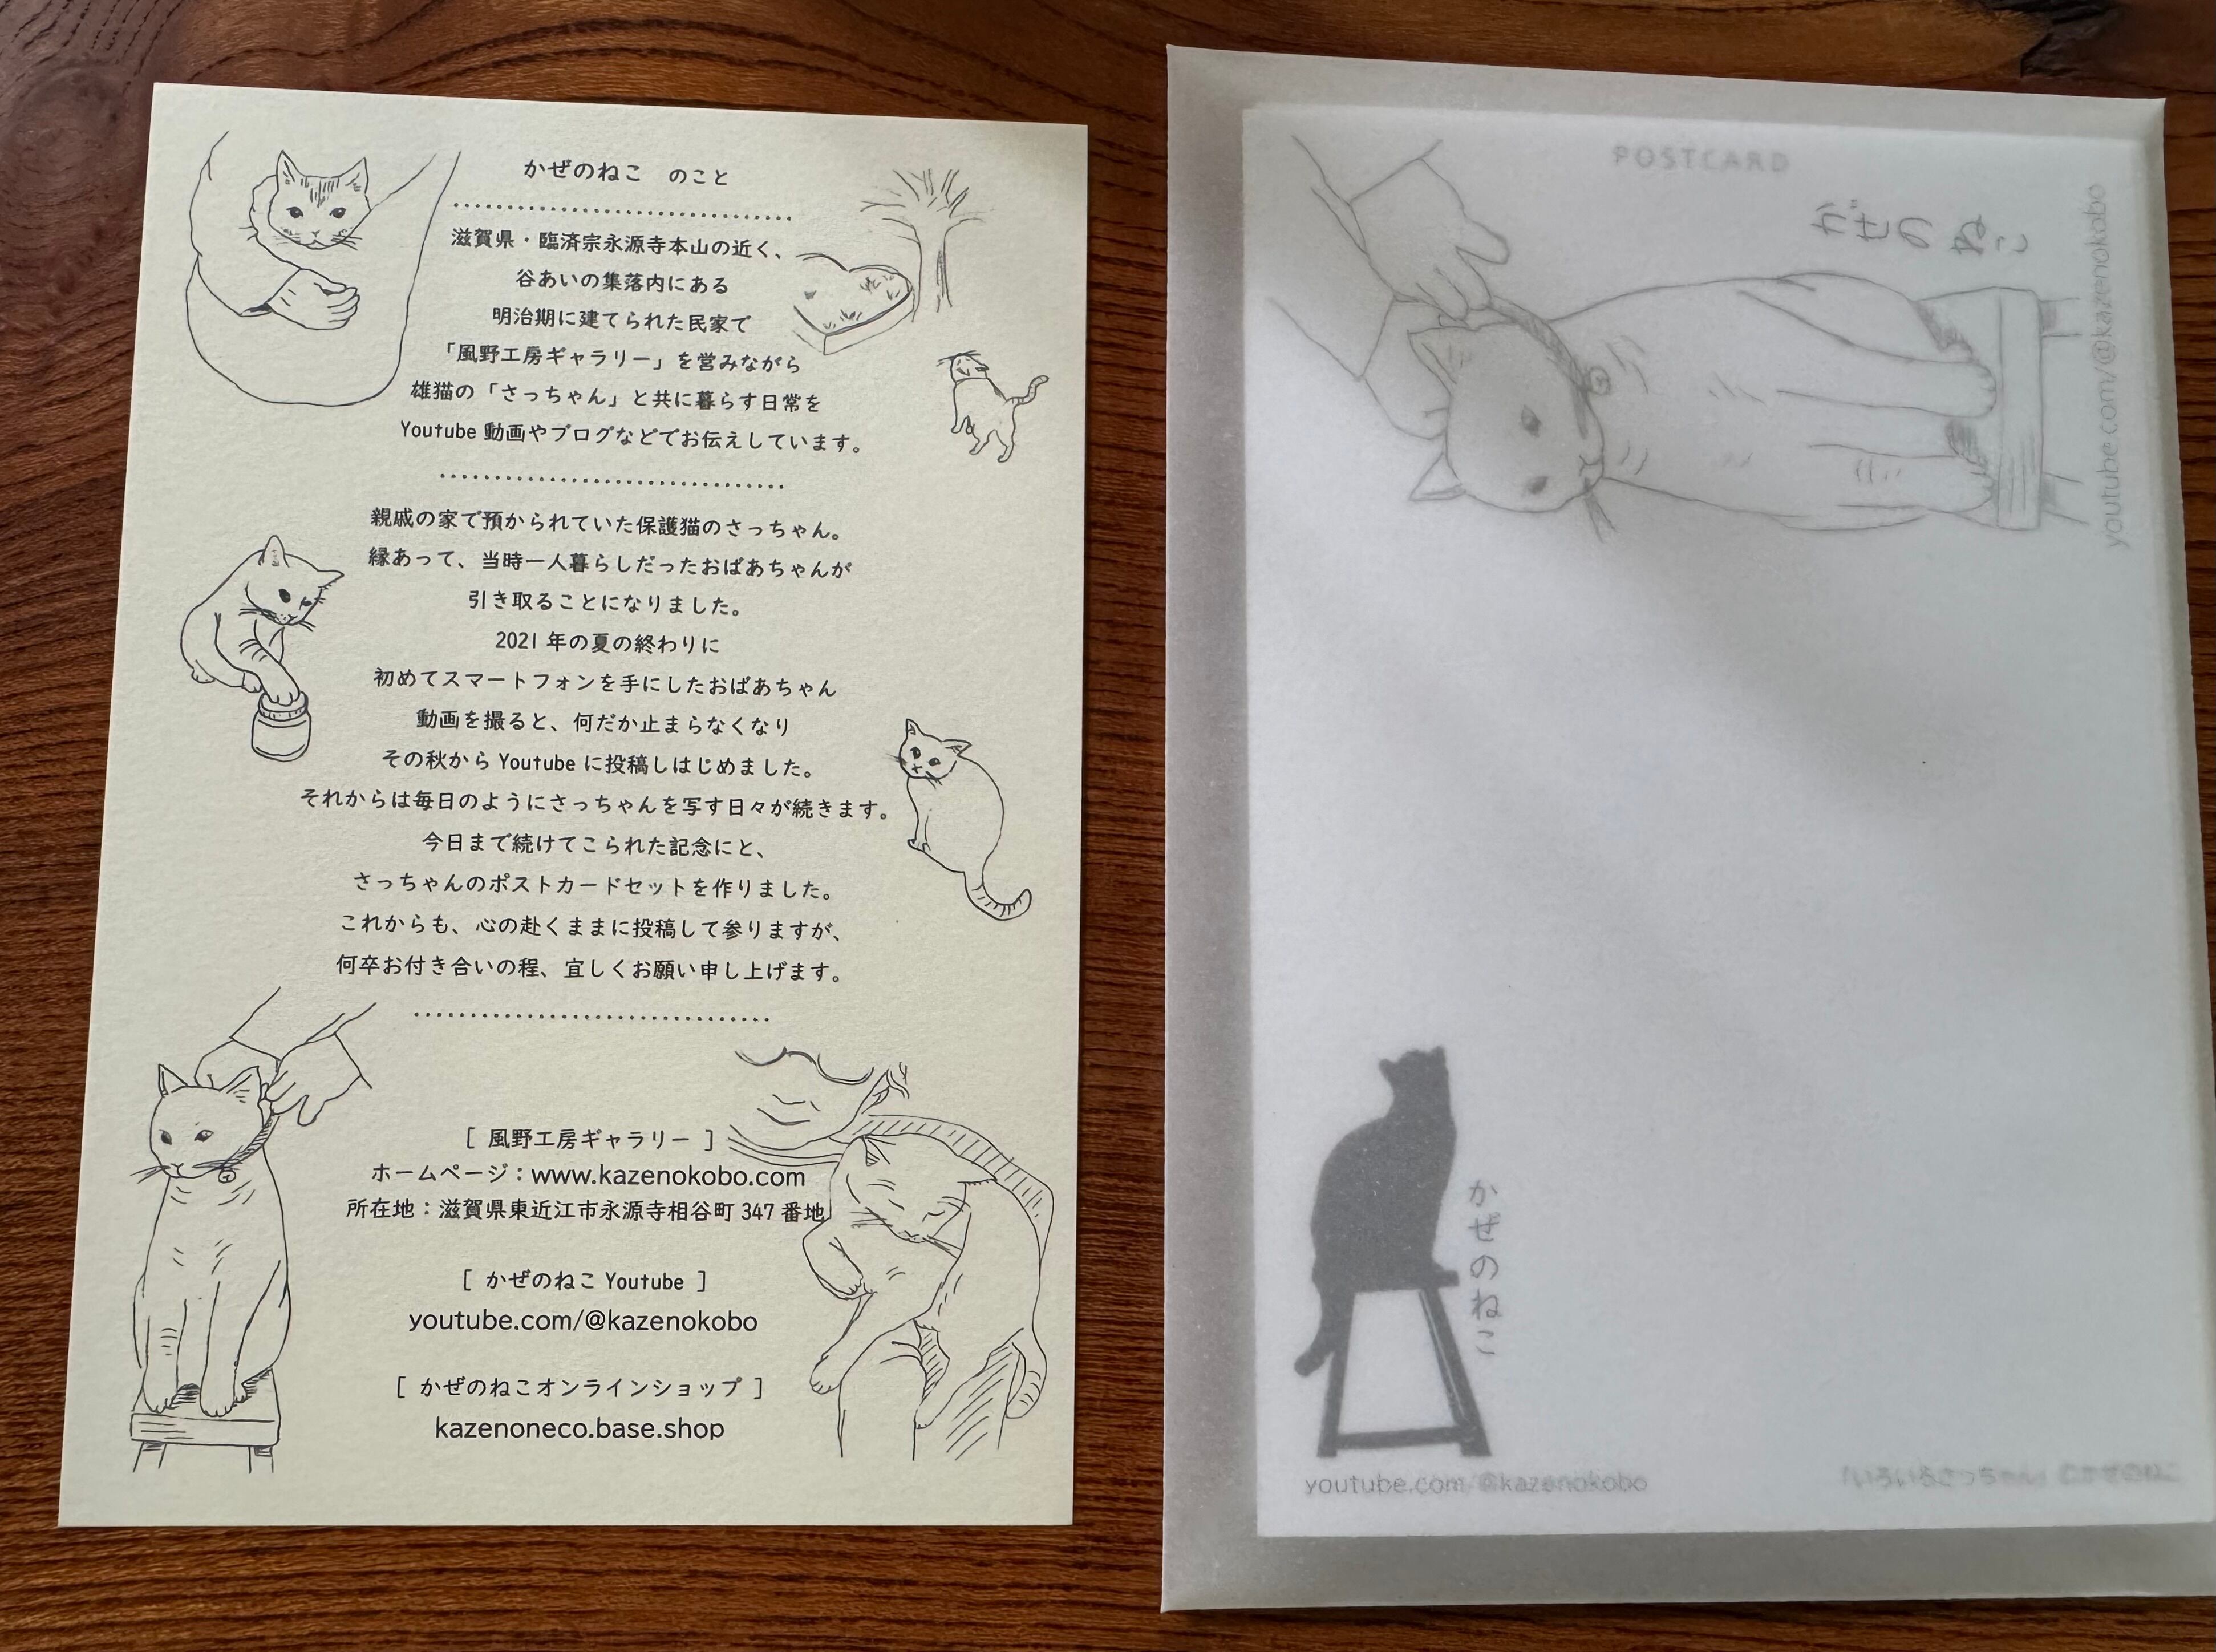 かぜのねこ のこと
滋賀県・臨済宗永源寺本山の近く、
谷あいの集落内にある
明治期に建てられた民家で
「風野工房ギャラリー」を営みながら
雄猫の「さっちゃん」と共に暮らす日常を
Youtube 動画やブログなどでお伝えしています。
親戚の家で預かられていた保護猫のさっちゃん。
縁あって、当時一人暮らしだったおばあちゃんが
引き取ることになりました。
2021 年の夏の終わりに
初めてスマートフォンを手にしたおばあちゃん
動画を撮ると、何だか止まらなくなり
その秋から Youtube に投稿しはじめました。
それからは毎日のようにさっちゃんを写す日々が続きます。
今日まで続けてこられた記念にと、
さっちゃんのポストカードセットを作りました。
これからも、心の赴くままに投稿して参りますが、
何卒お付き合いの程、宜しくお願い申し上げます。
[ 風野工房ギャラリー ]
ホームページ：www.kazenokobo.com
所在地：滋賀県東近江市永源寺相谷町 347 番地
[ かぜのねこ Youtube ]
youtube.com/@kazenokobo
[ かぜのねこオンラインショップ ]
kazenoneco.base.shop
POSTCARD
かぜのねこ
youtube.com/@kazenokobo
かぜのねこ
youtube.com/@kazenokobo
「いろいろさっちゃん」©かぜのねこ